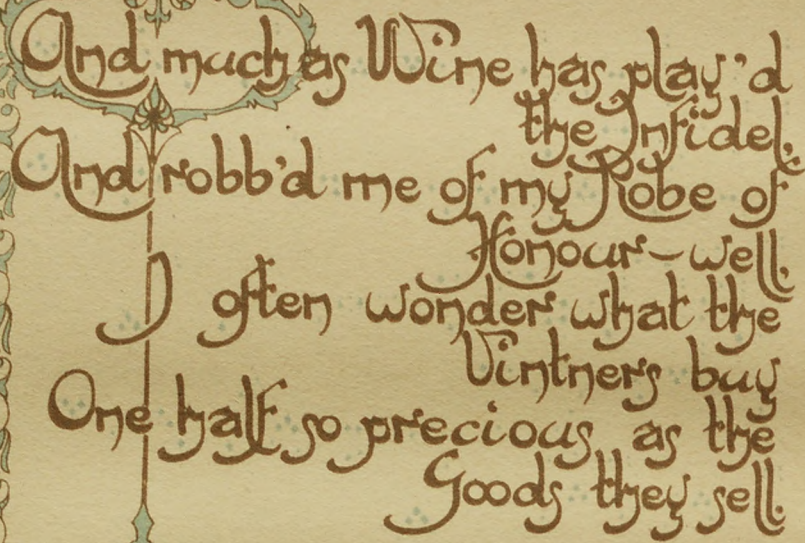 And much as Wine has play'd
the Infidel,
And robb'd me of my Robe of
Honour—well,
I often wonder what the
Vintners buy
One half so precious as the
Goods they sell.